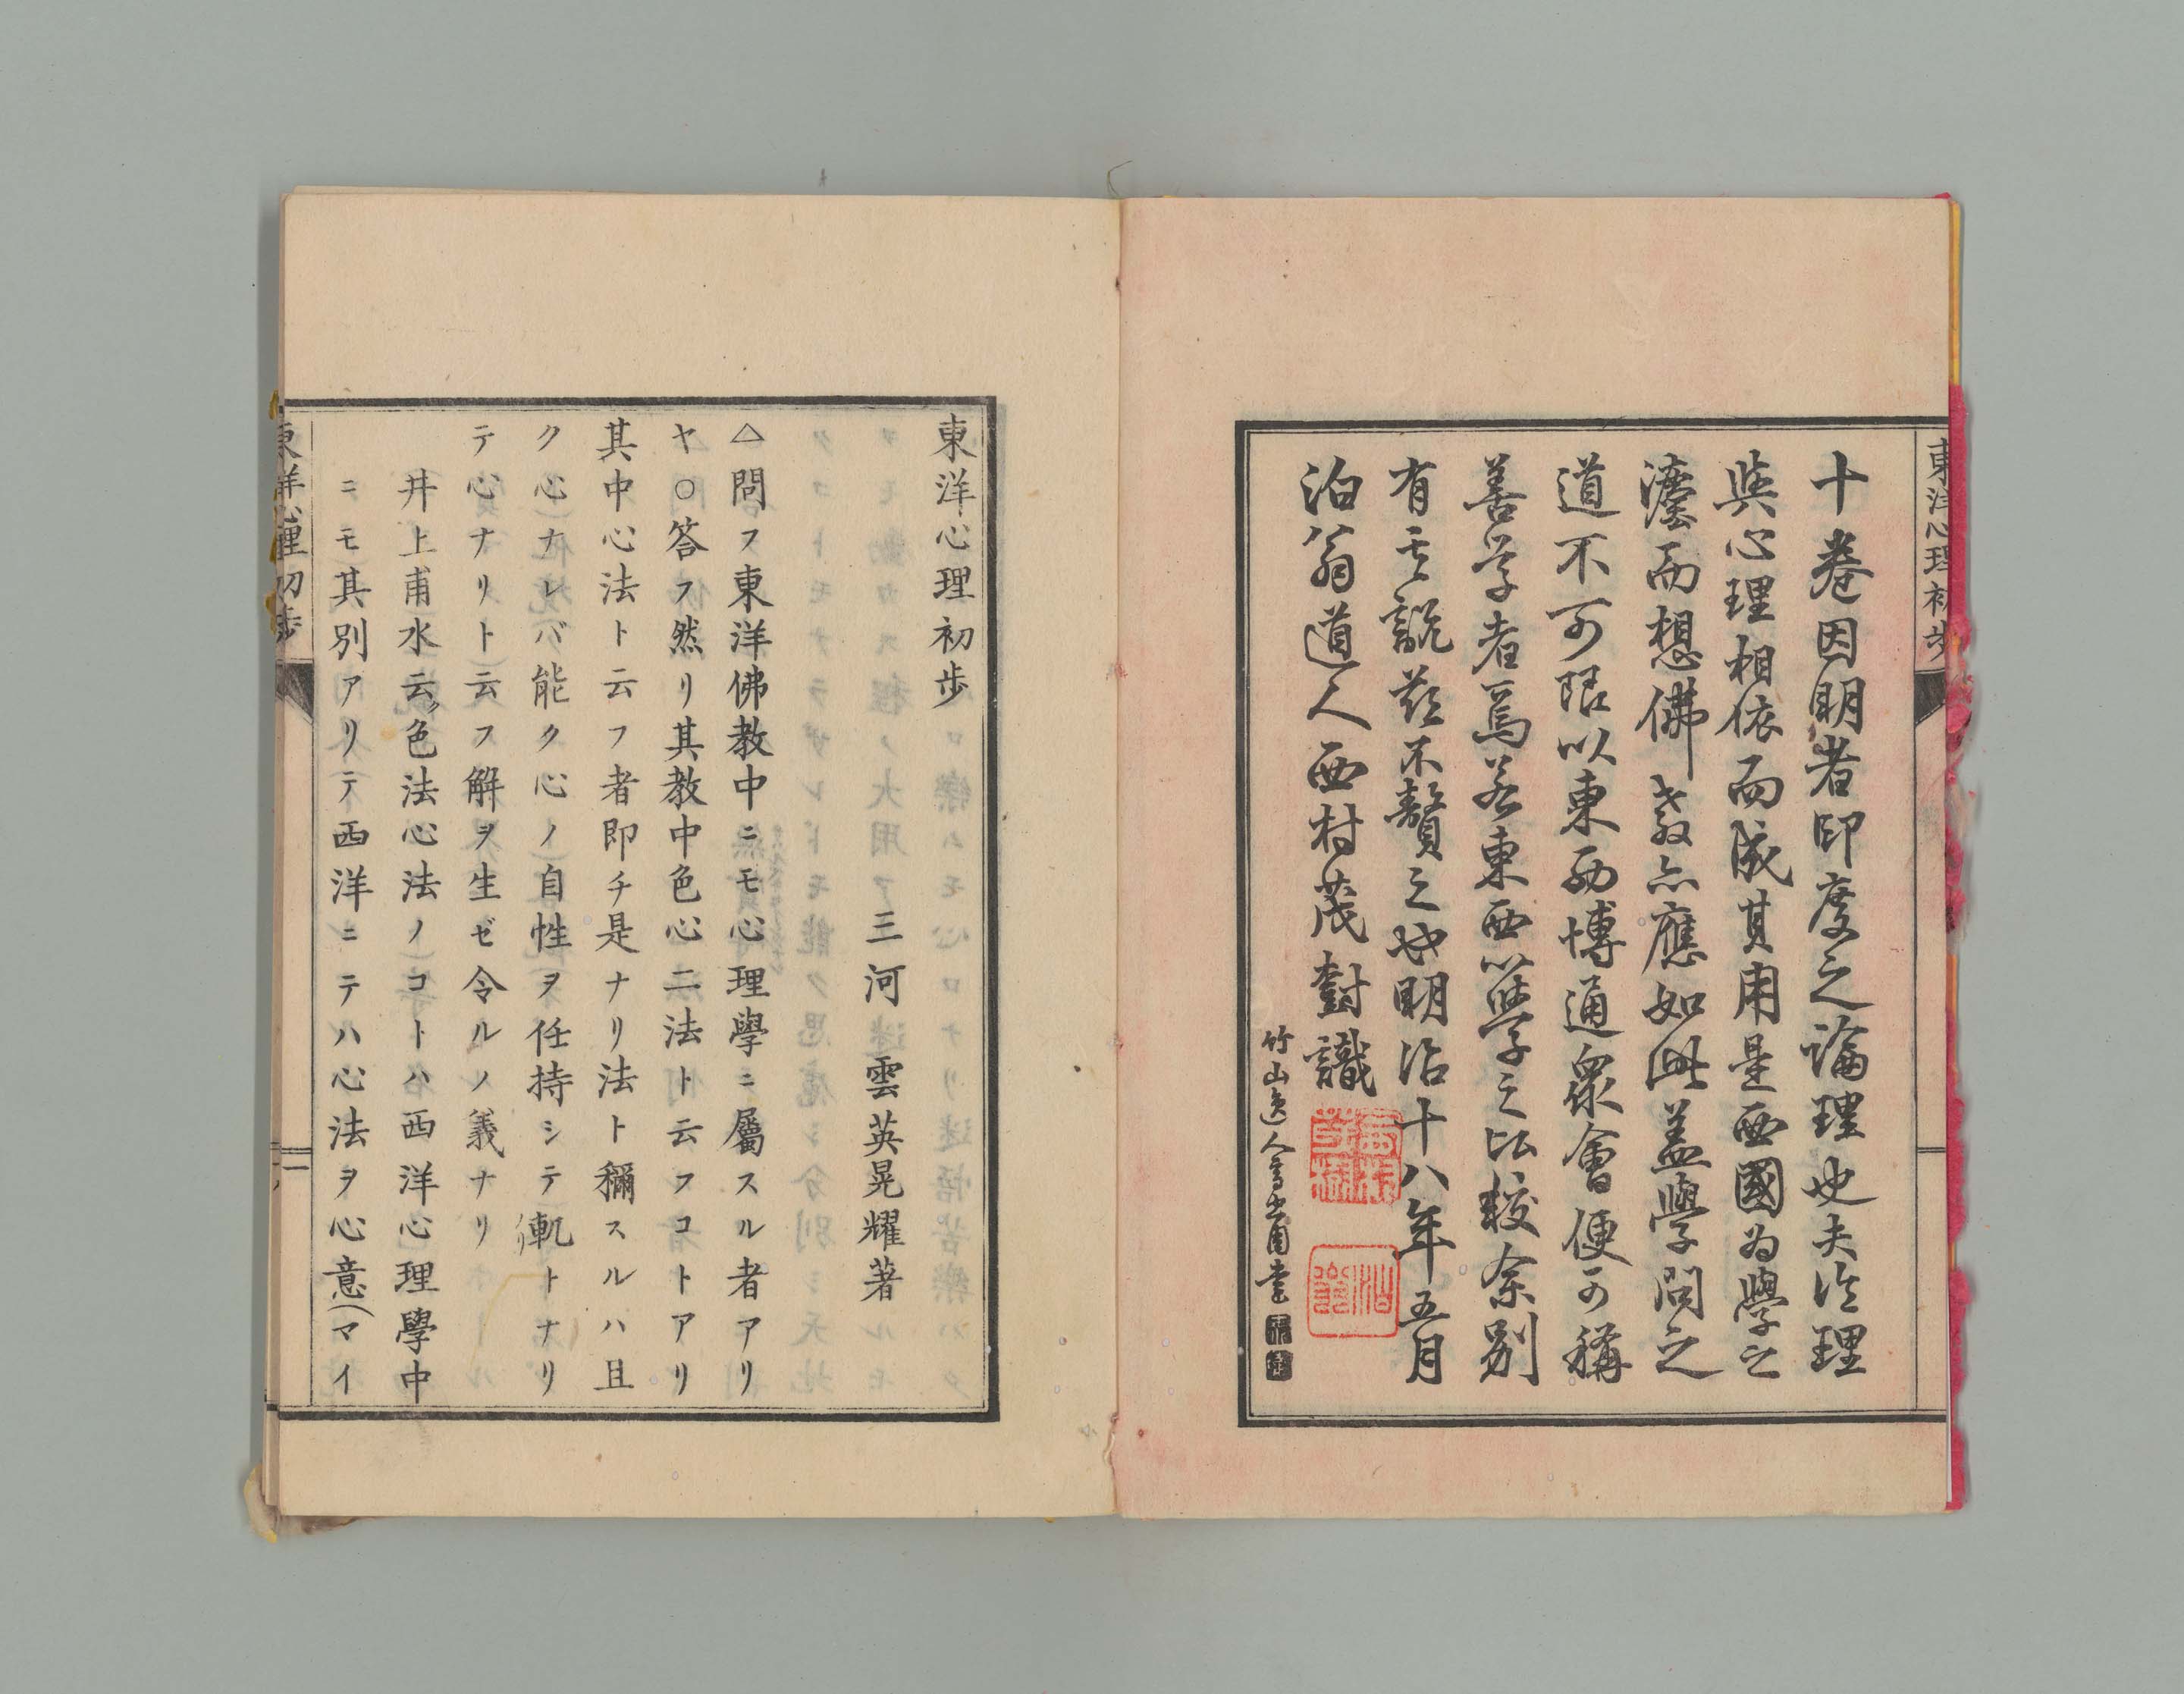 東洋心理初步
十卷因明者印度之論理也夫論理
與心理相依而成其用是西國為學之
瀍而想佛教亦應如此蓋學問之
道不可限以東西博通衆會便可稱
善學者焉若東西學之比較余別
有其說茲不贅之也明治十八年五月
泊翁道人西村茂樹識
竹山逸人高
東洋心理初步
三河 雲英晃耀著
△問フ東洋佛教中ニモ心理學ニ屬スル者アリ
ヤ○答フ然リ其教中色心二法ト云フコトアリ
其中心法ト云フ者即チ是ナリ法ト稱スルハ且
ク心ナレバ能ク心ノ自性ヲ任持シテ軌トナリ
テ心ナリト云フ解ヲ生ゼ令ルノ義ナリ
井上甫水云ク色法心法ノコトハ西洋心理學中
ニモ其別アリテ西洋ニテハ心法ヲ心意(マイ
東洋心理初步